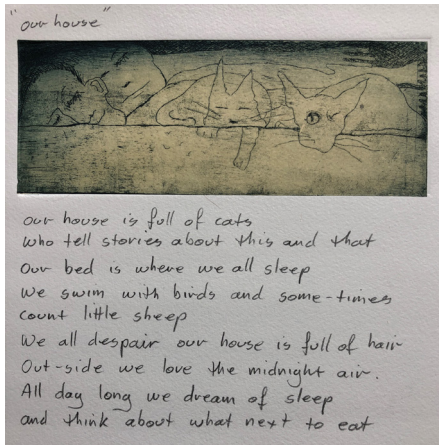 "our house"
our house is full of cats
who tell stories about this and that
Our bed is where we all sleep
We swim with birds and some-times
count little sheep
We all despair our house is full of hair
Out-side we love the midnight air.
All day long we dream of sleep
and think about what next to eat